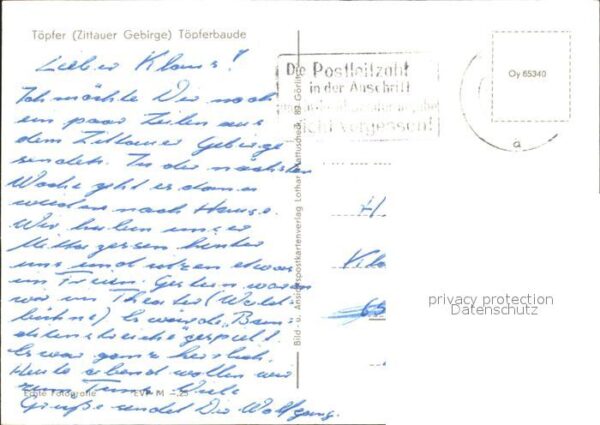 Töpfer (Zittauer Gebirge) Töpferbaude
Lieber Klaus!
Ich möchte Dir noch
ein paar Zeilen aus
dem Zittauer Gebirge
senden. In der nächsten
Woche geht es dann
wieder nach Hause.
Wir haben unser
Mittagessen hinter
uns und sitzen etwas
im Freien. Gestern waren
wir im Theater (Wald-
bühne) Es wurde
gespielt.
Es war ganz herrlich.
Heute abend wollen wir
zum Tanz. Viele
Grüße sendet Dir Wolfgang.
Echte Fotografie EVP M –,25
Bild- u. Ansichtspostkartenverlag Lothar Kattuschek, 89 Görlitz
Die Postleitzahl
in der Anschrift
nicht vergessen!
Oy 65340
a
H
Kla
65
privacy protection
Datenschutz